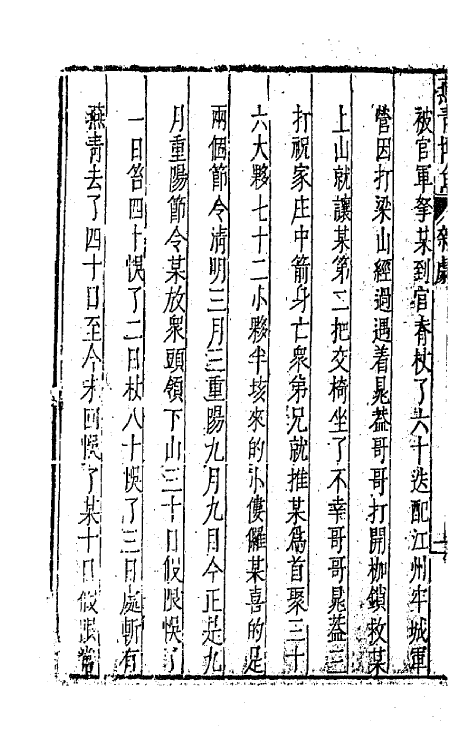 燕青博魚 雜劇
被官軍拏某到官脊杖了六十迭配江州牢城軍
營因打梁山經過遇着晁蓋哥哥打開枷鎖救某
上山就讓某第二把交椅坐了不幸哥哥晁蓋三
打祝家庄中箭身亡衆弟兄就推某爲首聚三十
六大夥七十二小夥半垓來的小僂儸某喜的是
兩個節令淸明三月三重陽九月九目今正是九
月重陽節令某放衆頭領下山三十日假限悞了
一日笞四十悞了二日杖八十悞了三日處斬有
燕靑去了四十日至今未回悞了某十日假限常